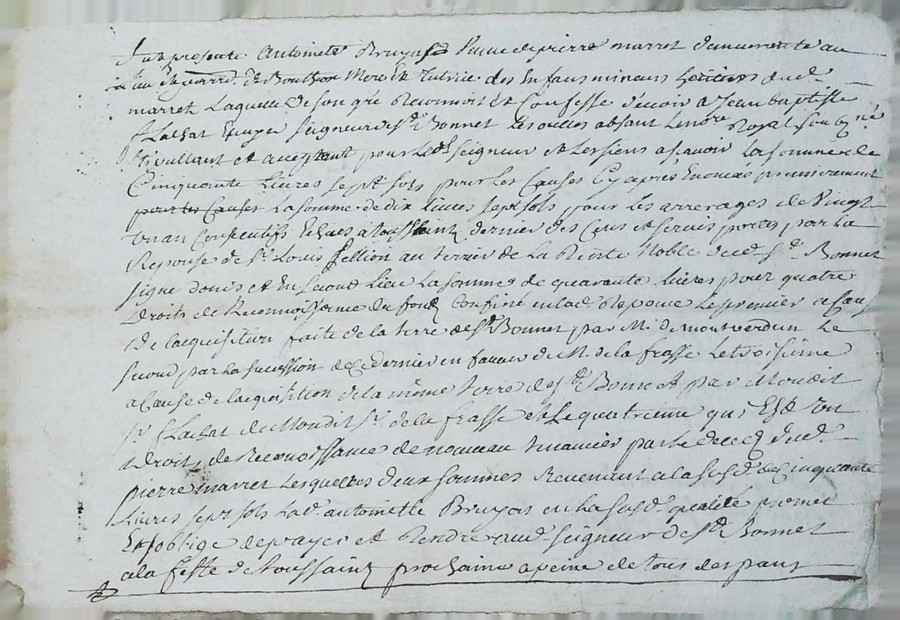 presente Antoinete Bruyas veuve de pierre marret demeurante au
de Bouthon Mere Et Tutrice des Enfans mineurs heritiers dud.
marret Laquelle de son gré Reconnoist et Confesse devoir a Jean baptiste
Flachat Ecuyer Seigneur de St Bonnet Les oulles absent Royal soussigné
et acceptant pour led. seigneur et Les siens a scavoir La somme de
Cinquante Livres sept sols pour les Causes Cy apres Enoncées premierement
pour les Causes La somme de dix Livres sept sols pour les arrerages de Vingt
un an Consecutifs Echus a Toussaint dernier des Cens et servis portés par la
Reponse de Sr Louis Pellion au terrier de la Rente Noble dud. St Bonnet
signé et En second Lieu La somme de quarante Livres pour quatre
Droits de Reconnoissance du fond Confiné en lad. Reponce Le premier a Cause
de lacquisition faite de la terre de St Bonnet par M. de montverdun Le
second par La succession de ce dernier en faveur de M. de la frasse Le troisieme
a Cause de lacquisition de la même Terre de St Bonnet par Mondit
Sr Flachat de Mondit Sr de la frasse et Le quatrieme qui Est un
Droit de Reconnoissance de nouveau tenancier par Le decez dud.
pierre marret Lesquelles deux sommes Revenant a la susd. de Cinquante
Livres sept sols Lad. antoinette Bruyas en La susd. qualité promet
Et soblige de payer et Rendre aud. seigneur de St Bonnet
a la feste de Toussaint prochaine a peine de tous despans